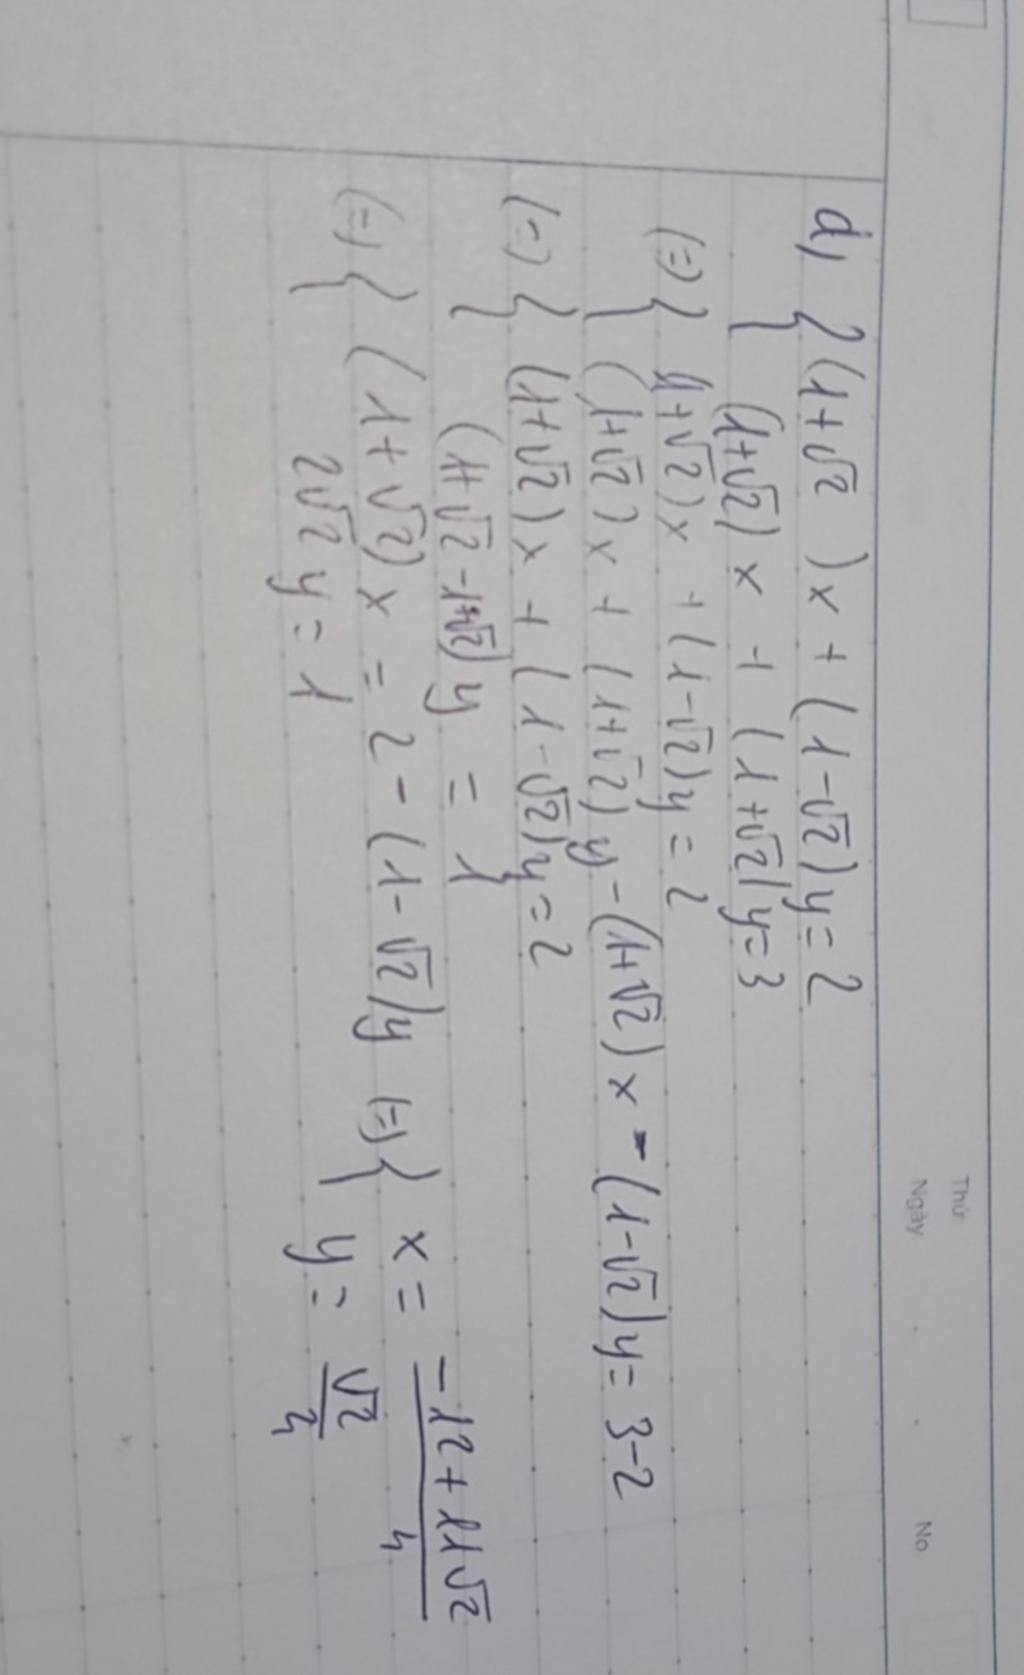 Thứ
Ngày . . No.
d) { (1+√2)x + (1-√2)y = 2
{ (1+√2)x + (1+√2)y = 3
(=) { (1+√2)x + (1-√2)y = 2
{ (1+√2)x + (1+√2)y - (1+√2)x - (1-√2)y = 3-2
(=) { (1+√2)x + (1-√2)y = 2
{ (1+√2-1+√2)y = 1
(=) { (1+√2)x = 2 - (1-√2)y (=) { x = (-12+11√2)/4
{ 2√2y = 1 { y = √2/4